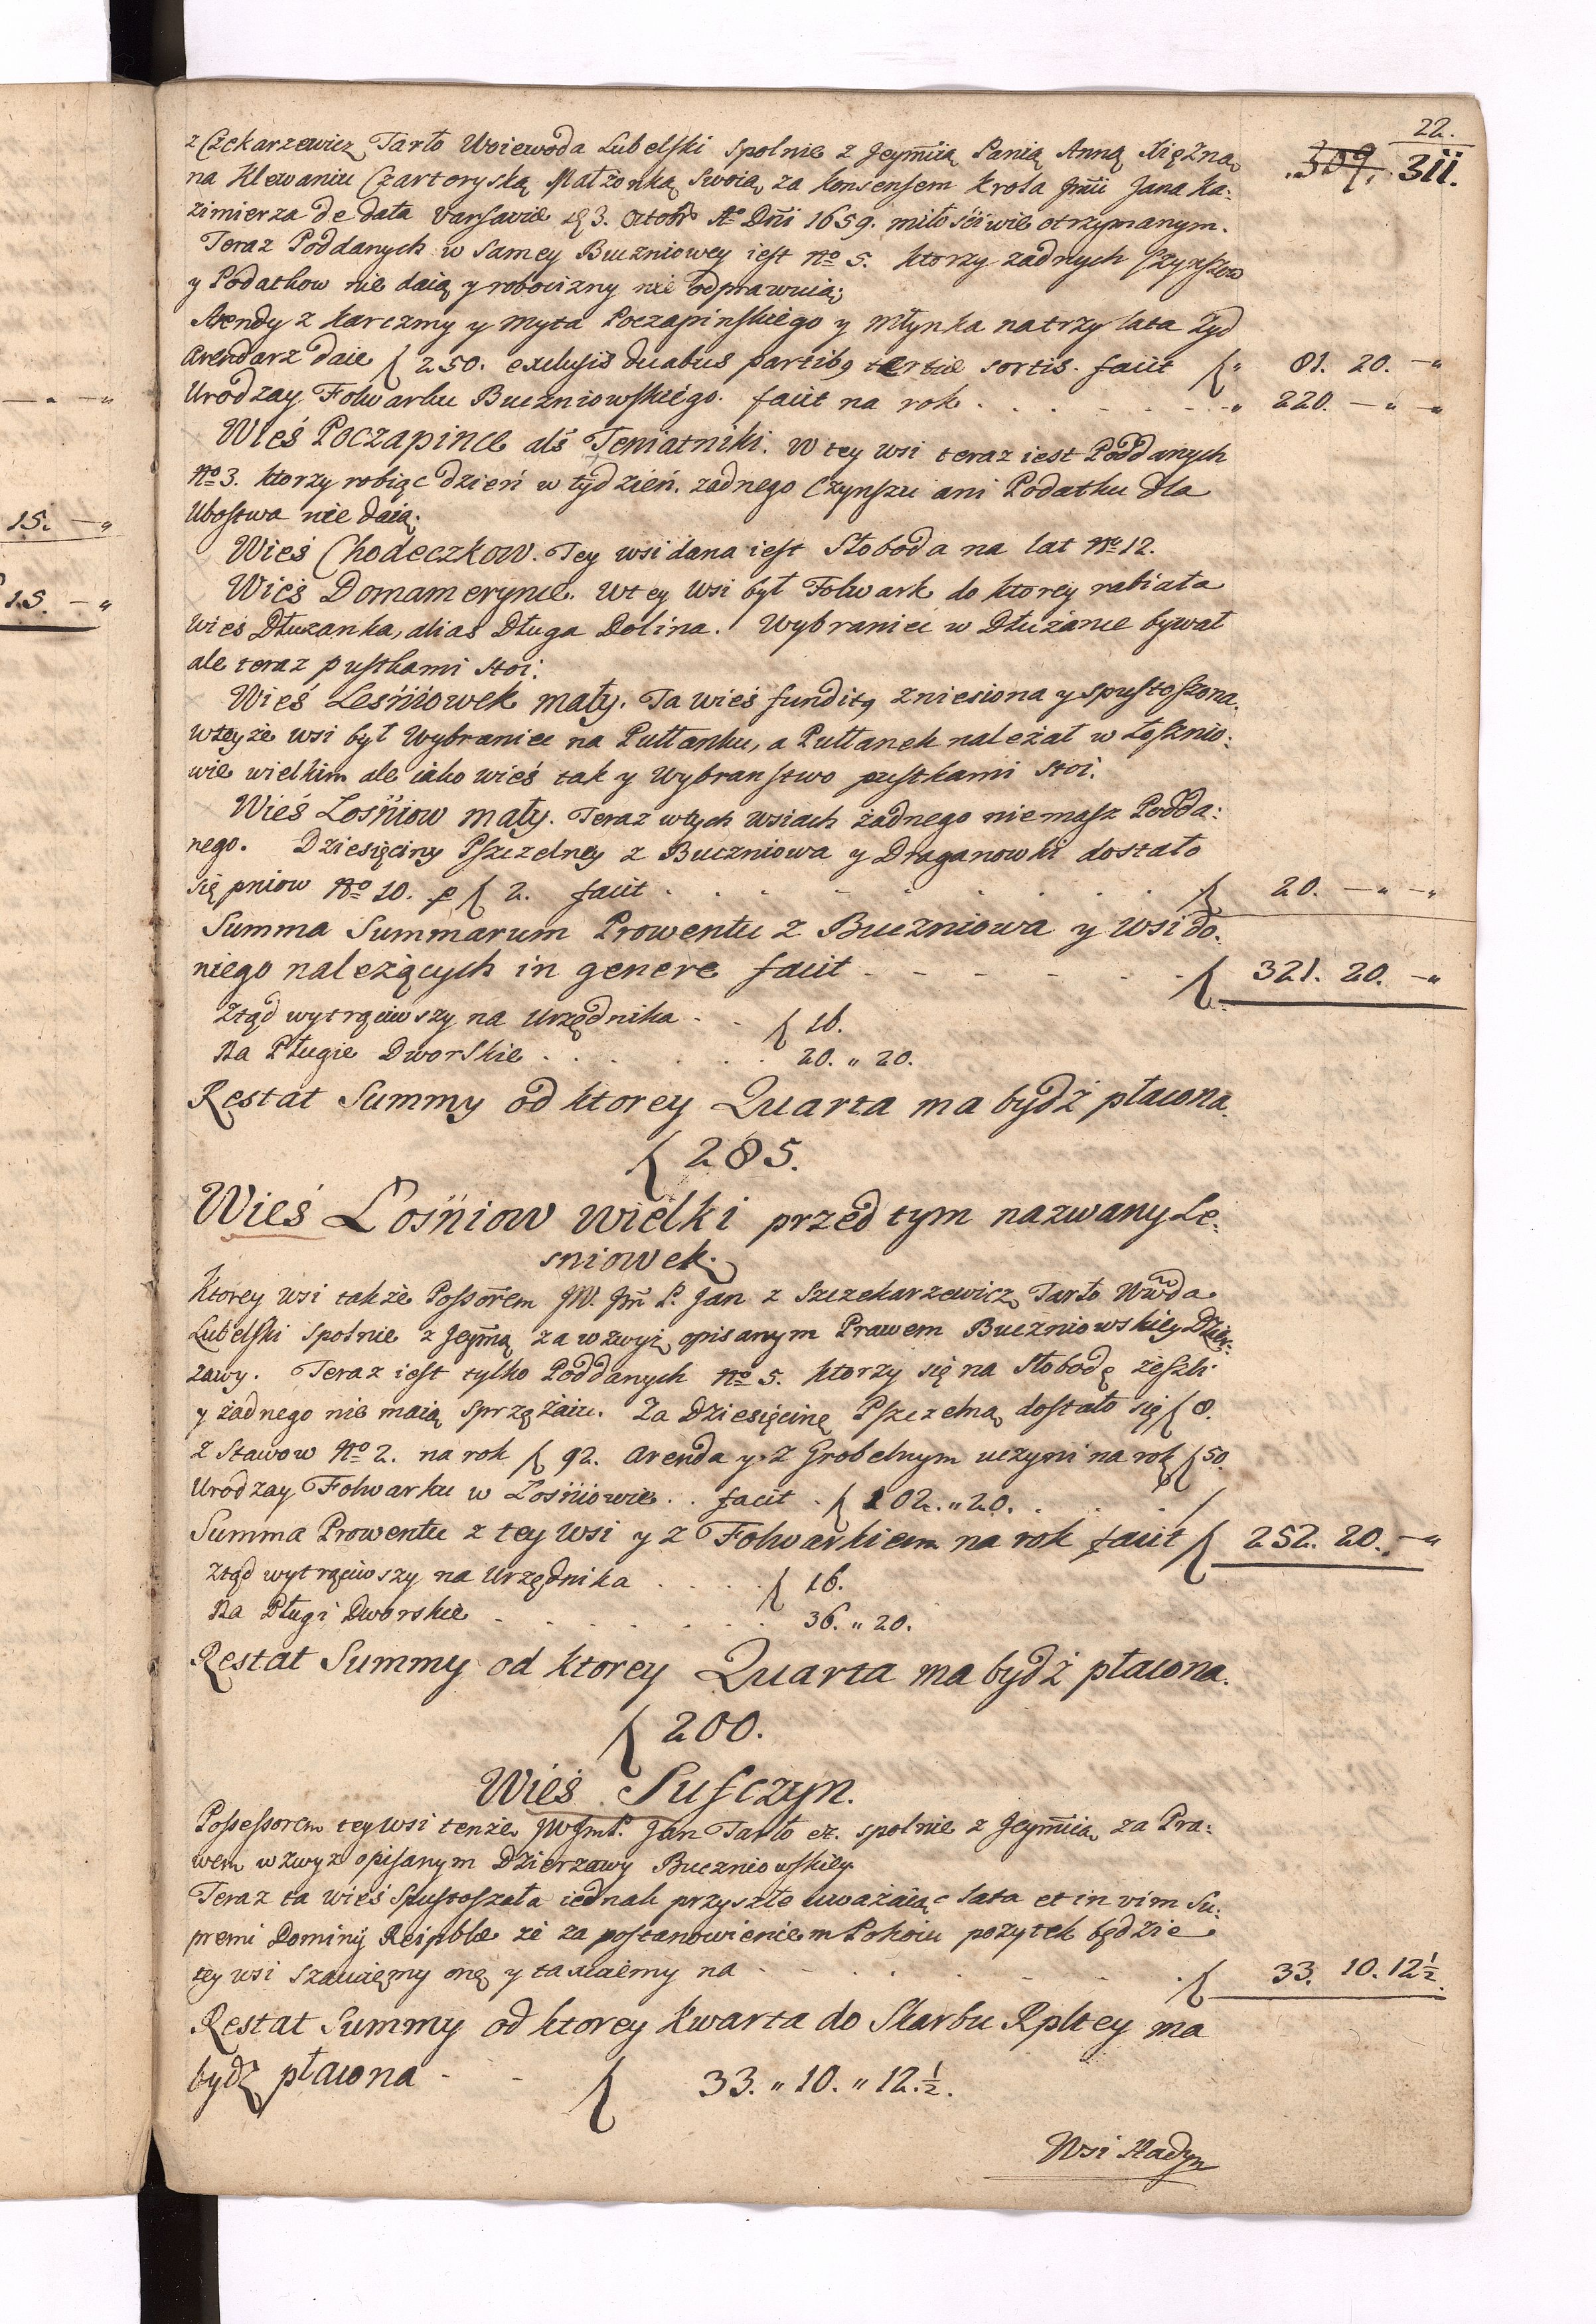 22.
309. 311.
z Czekarzewicz Tarło Woiewoda Lubelski spolnie z Jeymcią Panią Anną Xiężną
na Klewaniu Czartoryską Małżonką Swoią za konsensem Krola Jmci Jana Ka:
zimierza de data Varsaviae 3. Octobr Ao Dni 1659. miłościwie otrzymanym.
Teraz Poddanych w samey Buczniowey iest No 5. ktorzy zadnych Czynszow
y Podatkow nie daią y robocizny nie odprawuią;
Arendy z karczmy y myta Poczapinskiego y Młynka na trzy lata Żyd
Arendarz daie f 250. exclusis duabus partibq tertiae sortis. facit f " 81. 20. – "
Urodzay Folwarku Buczniowskiego. facit na rok . . . . " 220. – " – "
Wieś Poczapince als Teniatniki. W tey wsi teraz iest Poddanych
No 3. ktorzy robiąc dzień w tydzień. zadnego Czynszu ani Podatku dla
Ubostwa nie daią.
Wieś Chodeczkow. Tey wsi dana iest Słoboda na lat No 12.
Wieś Domamerynce. W tey wsi był Folwark do ktorey rabiała
wies Dłuzanka, alias Długa Dolina. Wybraniec w Dłużance bywał
ale teraz pustkami stoi.
Wieś Leśniowek mały. Ta wieś funditq zniesiona y spustoszona.
w teyże wsi był Wybraniec na Pułłanku, a Pułłanek należał w Łosznio:
wie wielkim ale iako wieś tak y wybranstwo pustkami stoi.
Wieś Lośniow mały. Teraz w tych wsiach żadnego niemasz Podda:
nego. Dziesięciny Pszczelney z Buczniowa y Draganowki dostało
się pniow No 10. p f 2. facit . . . . . f 20. – " – "
Summa Summarum Prowentu z Buczniowa y wsi do
niego należących in genere facit – – – – – f 321. 20. – "
Ztąd wytrąciwszy na Urzędnika . . f 16.
Na Pługie Dworskie . . . . . 20. " 20.
Restat Summy od ktorey Quarta ma bydź płacona.
f 285.
Wieś Lośniow wielki przed tym nazwany Le:
sniowek.
Ktorey wsi także Possorem JW. Jm P. Jan z Szczekarzewicz Tarło Wwda
Lubelski spolnie z Jeymą za wzwyż opisanym Prawem Buczniowskiey Dzier:
zawy. Teraz iest tylko Poddanych No 5. ktorzy się na Słobodę zeszli
y żadnego nie maią sprzężaiu. Za Dziesięcinę Pszczelną dostało się f 8.
z Stawow No 2. na rok f 92. Arenda y z Grobelnym uczyni na rok f 50.
Urodzay Folwarku w Lośniowie . . facit . f 102. " 20. . . . .
Summa Prowentu z tey wsi y z Folwarkiem na rok facit f 252. 20. – "
Ztąd wytrąciwszy na Urzędnika . . . . f 16.
Na Pługi Dworskie . . . . . . 36. " 20.
Restat Summy od ktorey Quarta ma bydź płacona.
f 200.
Wieś Susczyn.
Possessorem tey wsi tenże JWJmP. Jan Tarło etc. spolnie z Jeymcią za Pra:
wem wzwyz opisanym Dzierzawy Buczniowskiey
Teraz ta wieś spustoszała iednak przyszłe uważaiąc lata et in vim Su:
premi Dominij Reipblae ze za postanowieniem Pokoiu pozytek będzie
tey wsi szacuiemy onę y taxuiemy na . . . . . f 33. 10. 12½.
Restat Summy od ktorey Kwarta do Skarbu Rpltey ma
bydz płacona – – f 33. " 10. " 12.½.
Wsi Hadyn
15. – "
15. – "